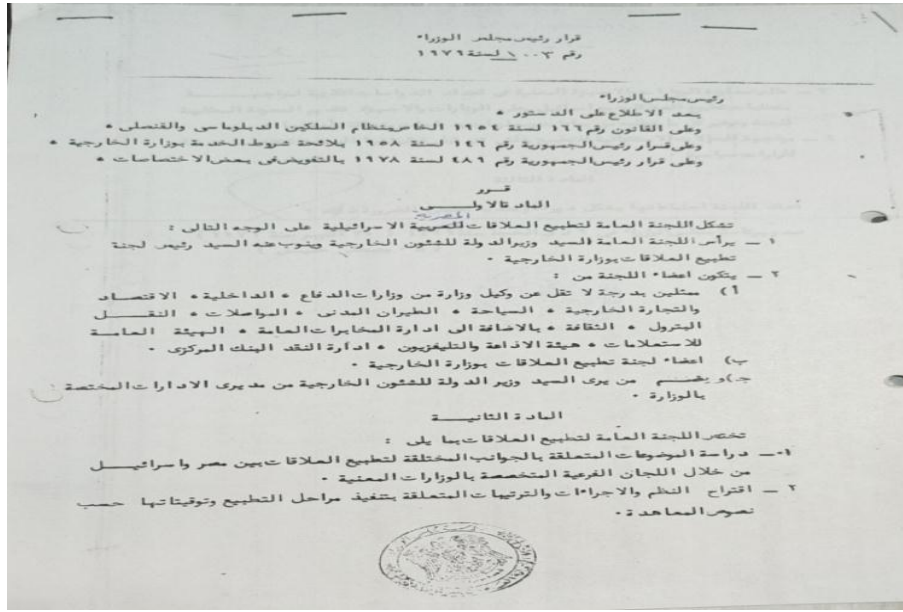 قرار رئيس مجلس الوزراء
رقم ١٠٠٣ لسنة ١٩٧٩
رئيس مجلس الوزراء
بعد الاطلاع على الدستور ٠
وعلى القانون رقم ١٦٦ لسنة ١٩٥٤ الخاص بنظام السلكين الدبلوماسى والقنصلى ٠
وعلى قرار رئيس الجمهورية رقم ١٤٦ لسنة ١٩٥٨ بلائحة شروط الخدمة بوزارة الخارجية ٠
وعلى قرار رئيس الجمهورية رقم ٤٨٩ لسنة ١٩٧٨ بالتفويض فى بعض الاختصاصات ٠
قرر
المادة الاولى
المصرية
تشكل اللجنة العامة لتطبيع العلاقات للعربية الاسرائيلية على الوجه التالى :
١ ـ يرأس اللجنة العامة السيد وزير الدولة للشئون الخارجية وينوب عنه السيد رئيس لجنة
تطبيع العلاقات بوزارة الخارجية ٠
٢ ـ يتكون اعضاء اللجنة من :
أ) ممثلين بدرجة لا تقل عن وكيل وزارة من وزارات الدفاع ٠ الداخلية ٠ الاقتصاد
والتجارة الخارجية ٠ السياحة ٠ الطيران المدنى ٠ المواصلات ٠ النقل
البترول ٠ الثقافة ٠ بالاضافة الى ادارة المخابرات العامة ٠ الهيئة العامة
للاستعلامات ٠ هيئة الاذاعة والتليفزيون ٠ ادارة النقد البنك المركزى ٠
ب) اعضاء لجنة تطبيع العلاقات بوزارة الخارجية ٠
جـ) ويضم من يرى السيد وزير الدولة للشئون الخارجية من مديرى الادارات المختصة
بالوزارة ٠
المادة الثانية
تختص اللجنة العامة لتطبيع العلاقات بما يلى :
١ ـ دراسة الموضوعات المتعلقة بالجوانب المختلفة لتطبيع العلاقات بين مصر واسرائيل
من خلال اللجان الفرعية المتخصصة بالوزارات المعنية ٠
٢ ـ اقتراح النظم والاجراءات والترتيبات المتعلقة بتنفيذ مراحل التطبيع وتوقيتاتها حسب
نصوص المعاهدة ٠